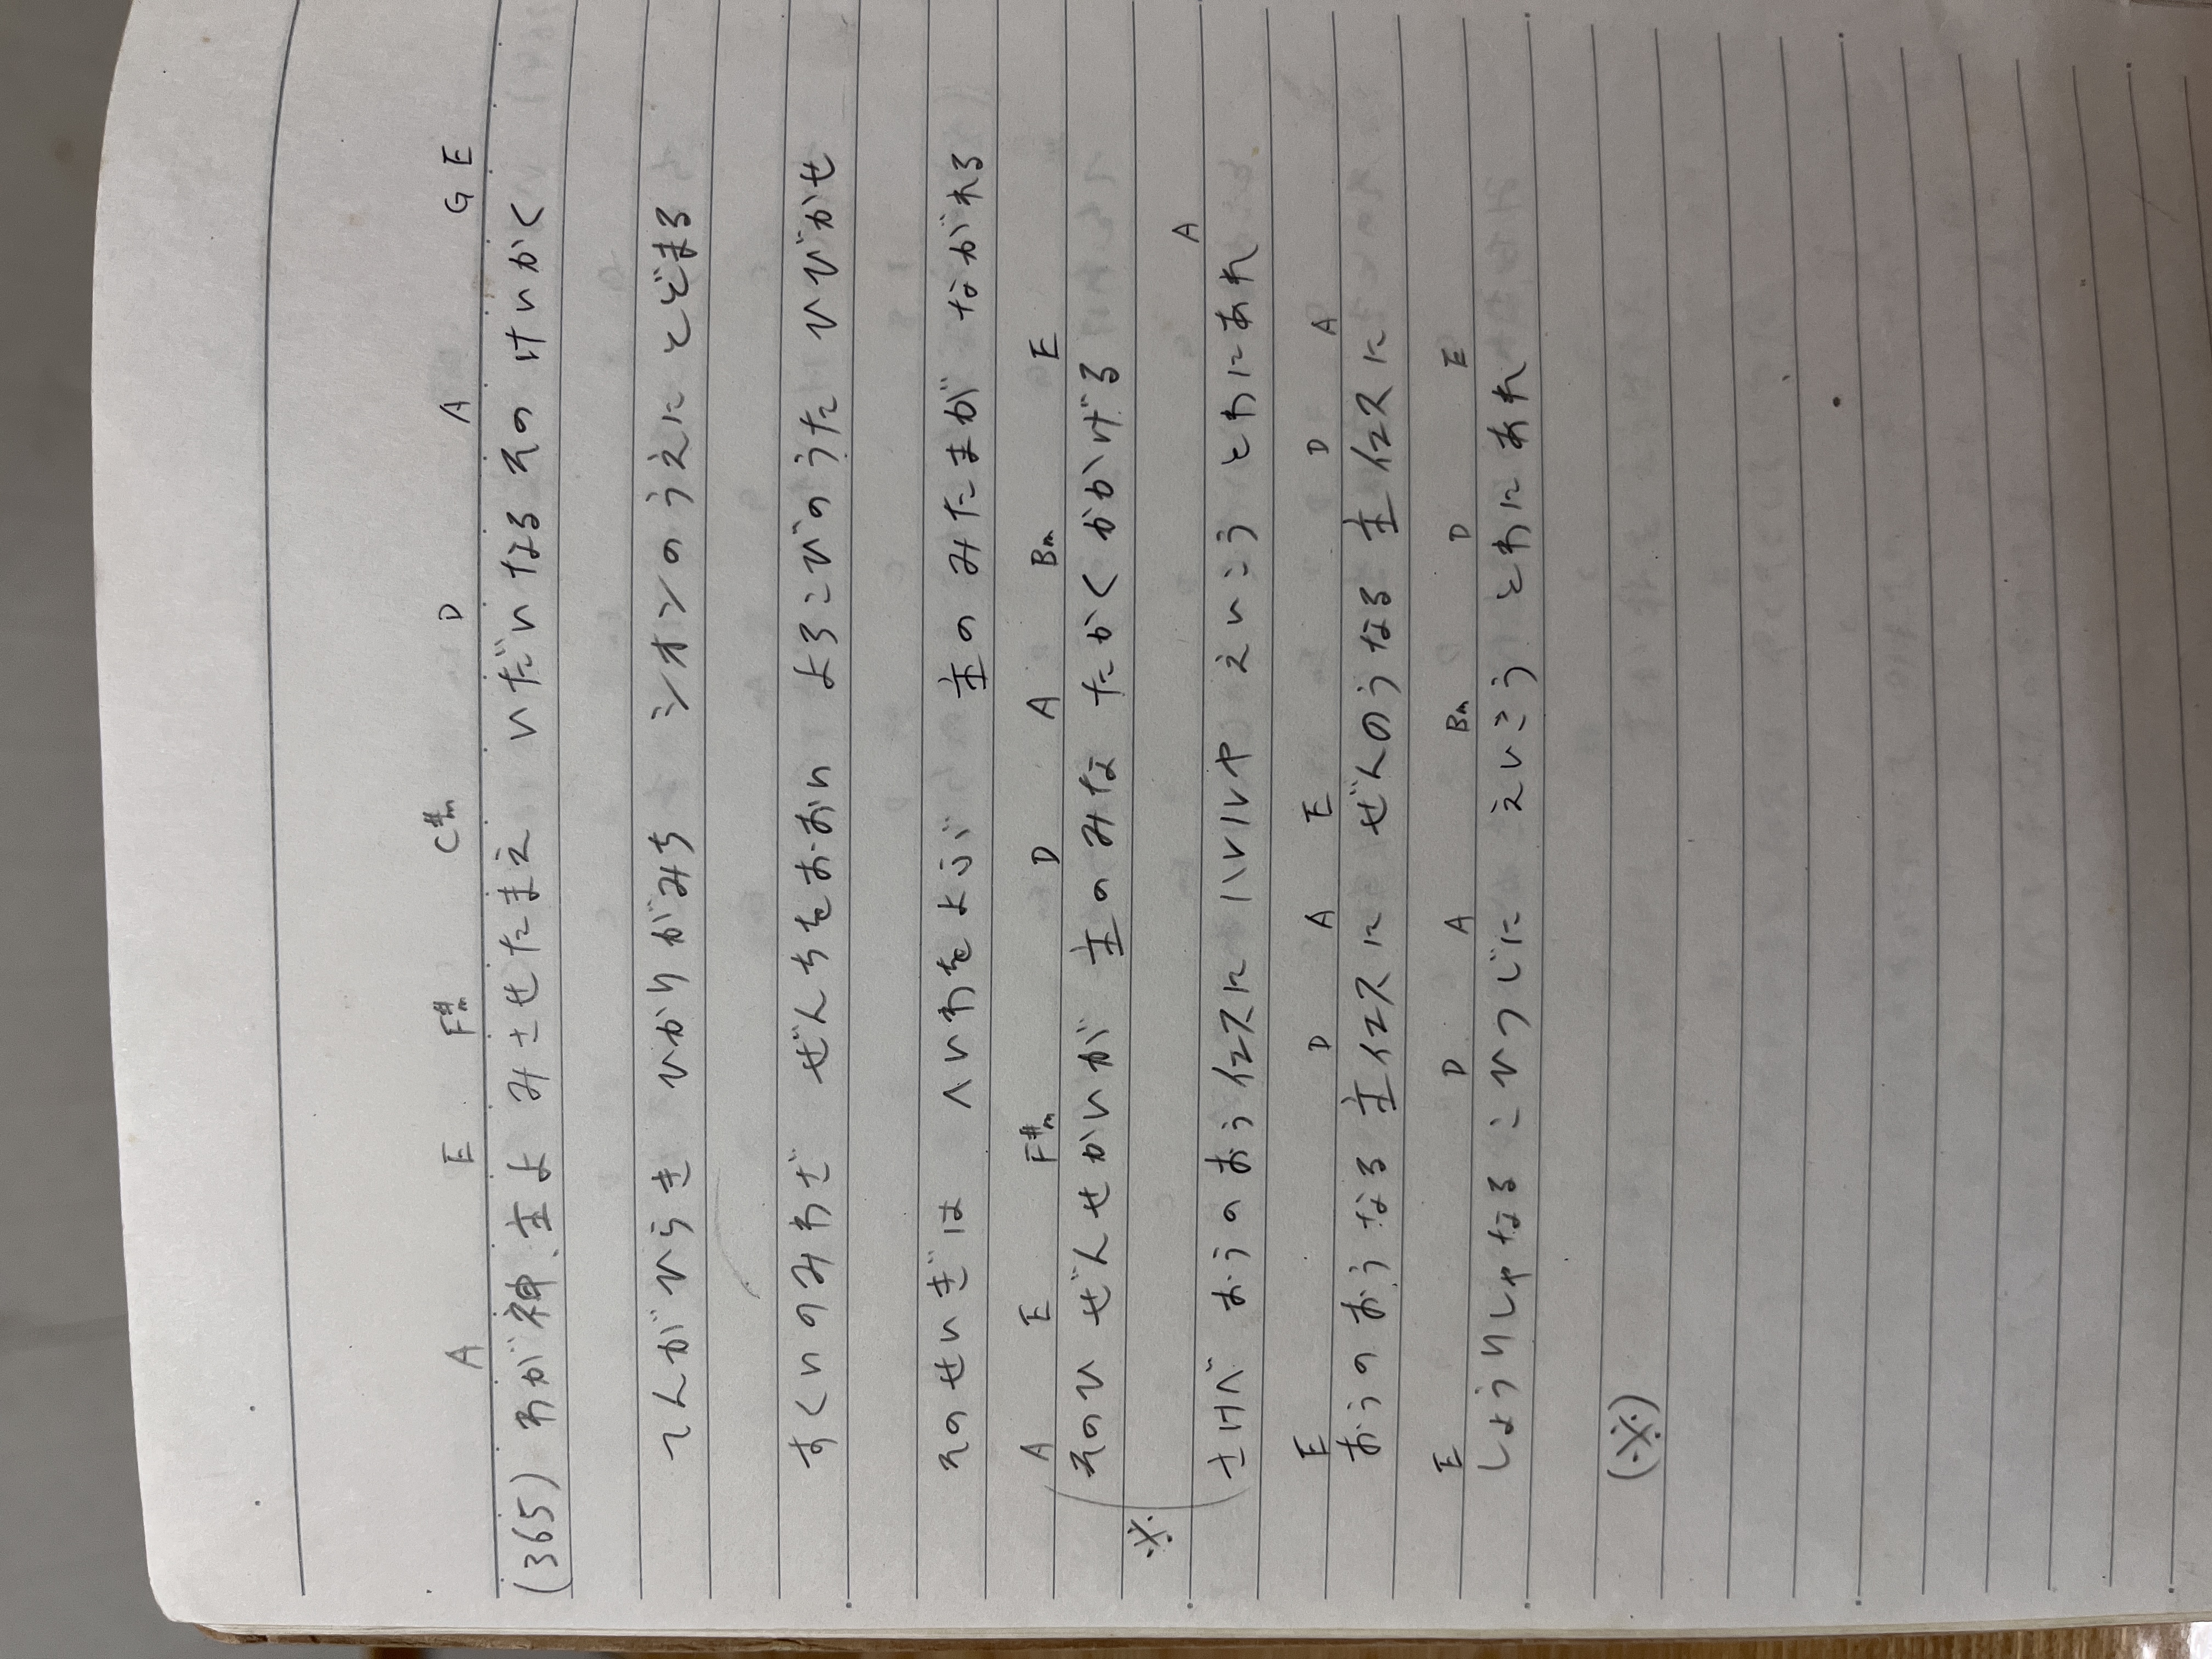 A E F#m C#m D A G E
(365) わが神、主よ みさせたまえ いだいなる その けいかく
てんが ひらき ひかりがみち シオンのうえに とどまる
すくいのみわざ ぜんちをおおい よろこびのうた ひびかせ
そのせいぎは へいわをよぶ 主の みたまが ながれる
A E F#m D A Bm E
そのひ ぜんせかいが 主のみな たかく かかげる
※
A
さけべ おうのおうイエスに ハレルヤ えいこう とわにあれ
E D A E D A
おうのおうなる 主イエスに ぜんのうなる 主イエスに
E D A Bm D E
しょうりしゃなる こひつじに えいこう とわにあれ
(※)